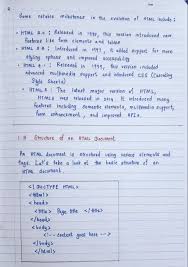 Some notable milestones in the evolution of HTML include:
• HTML 2.0 : Released in 1995, this version introduced new features like form elements and tables
• HTML 3.2 : Introduced in 1997, it added support for more styling options and improved accessibility
• HTML 4.01 : Released in 1999, this version included advanced multimedia support and introduced CSS (Cascading Style Sheets)
• HTML 5 : The latest major version of HTML, HTML5 was released in 2014. It introduced many features including semantic elements, multimedia support, form enhancement, and improved APIs.
Structure of an HTML Document
An HTML document is structured using various elements and tags. Let's take a look at the basic structure of an HTML document.
<!DOCTYPE HTML>
<html>
<head>
<title> Page title </title>
</head>
<body>
<!-- content goes here -->
</body>
</html>